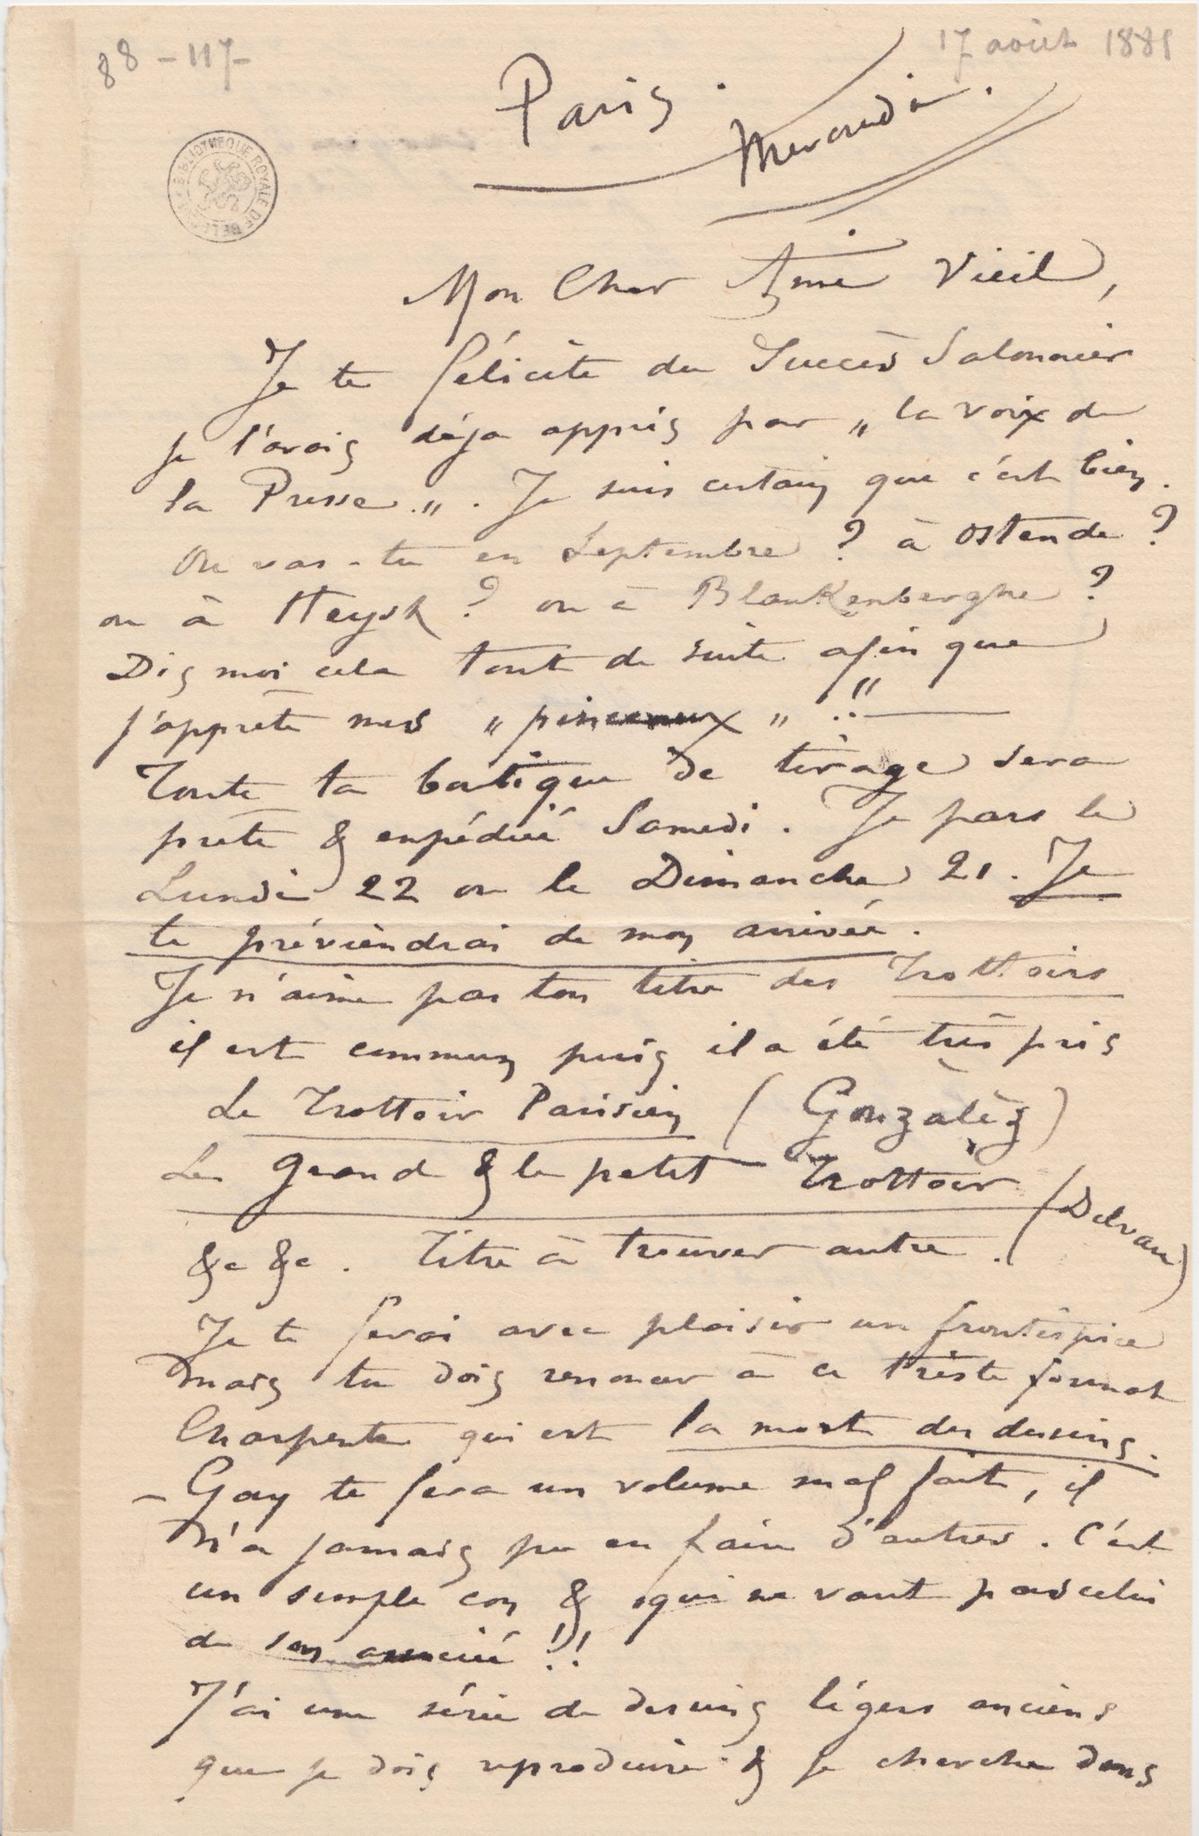 88-117-
17 août 1881
Paris. Mercredi.
BIBLIOTHEQUE ROYALE DE BELGIQUE
Mon Cher Ami Vieil,
Je te félicite du Succès Salonnier
je l'avais déja appris par „ la voix de
la Presse „. Je suis certain que c'est bien.
Ou vas-tu en Septembre ? à Ostende ?
ou à Heyst ? ou à Blankenberghe ?
Dis moi cela tout de suite afin que
j'apprete mes „ pinceaux „ !!
Toute ta boutique de tirage sera
prete & expédiée Samedi. Je pars le
Lundi 22 ou le Dimanche 21. Je
te préviendrai de mon arrivée.
Je n'aime pas ton titre des Trottoirs
il est commun puis il a été très pris
Le Trottoir Parisien (Gonzalès)
Le Grand & le petit Trottoir (Delvau)
&c &c. Titre à trouver autre.
Je te ferai avec plaisir un frontispice
mais tu dois renoncer à ce triste format
Charpentier qui est la mort des dessins.
- Gay te fera un volume mal fait, il
n'a jamais pu en faire d'autres. C'est
un simple con & qui ne vaut pas celui
de son associé !!
J'ai une série de dessins légers anciens
que je dois reproduire & je cherche dans